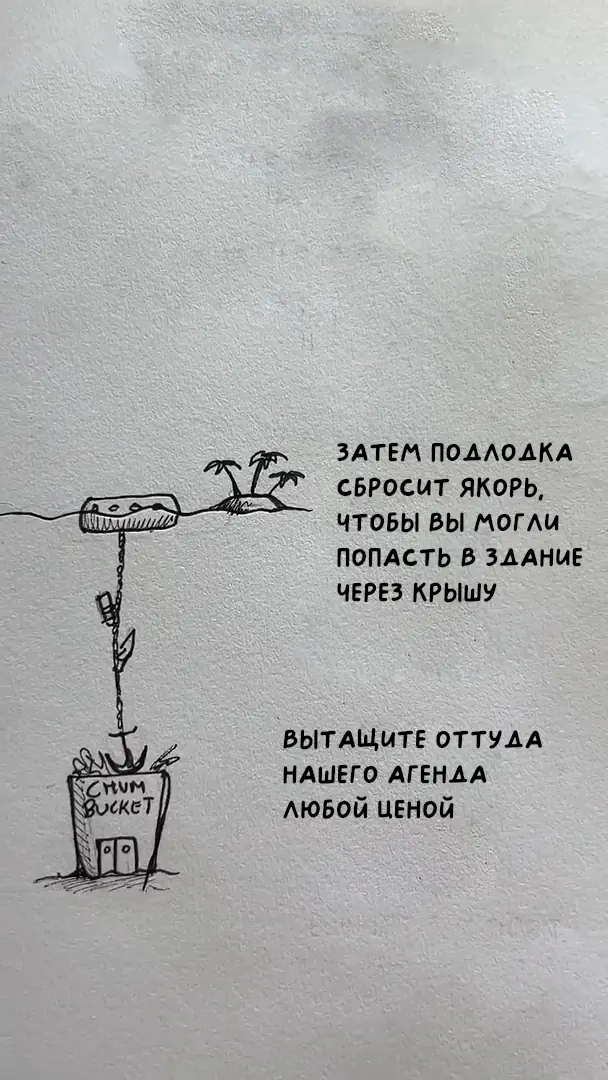 ЗАТЕМ ПОДЛОДКА
СБРОСИТ ЯКОРЬ,
ЧТОБЫ ВЫ МОГЛИ
ПОПАСТЬ В ЗДАНИЕ
ЧЕРЕЗ КРЫШУ
ВЫТАЩИТЕ ОТТУДА
НАШЕГО АГЕНДА
ЛЮБОЙ ЦЕНОЙ
CHUM
BUCKET